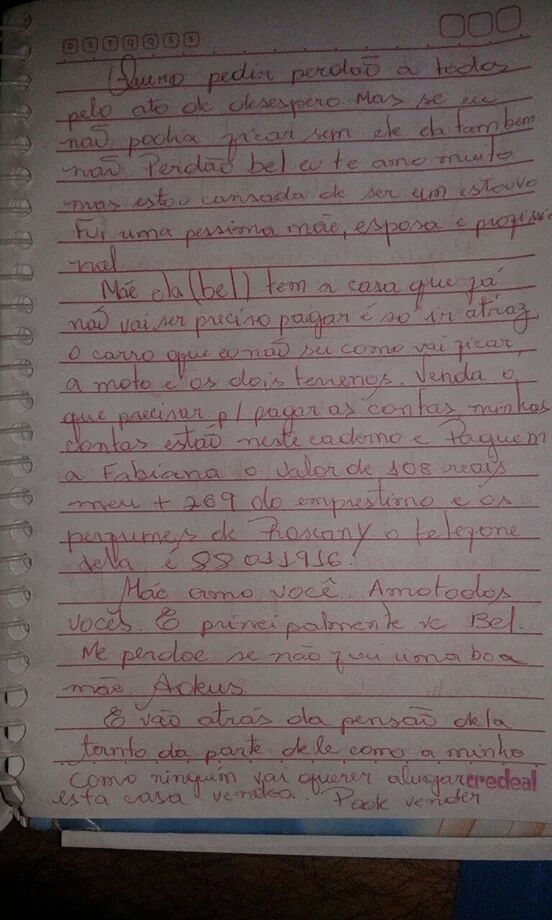 D S T Q Q S S
Quero pedir perdão a todos
pelo ato de desespero. Mas se eu
não podia ficar sem ele ela tambem
não. Perdão bel eu te amo muito
mas estou cansada de ser um estorvo
Fui uma pessima mãe, esposa e
Mãe ela (bel) tem a casa que já
não vai ser preciso pagar é só ir atraz,
o carro que eu não sei como vai ficar,
a moto e os dois terrenos. Venda o
que precisar p/ pagar as contas minhas
contas estão neste caderno e Paguem
a Fabiana o valor de 108 reais
meu + 269 do emprestimo e os
perfumes de o telefone
dela é 88011916.
Mãe amo você. Amo todos
vocês. E principalmente vc Bel.
Me perdoe se não fui uma boa
mãe. Adeus
E vão atrás da pensão dela
tanto da parte dele como a minha
como ninguém vai querer alugar
credeal
esta casa Pode vender